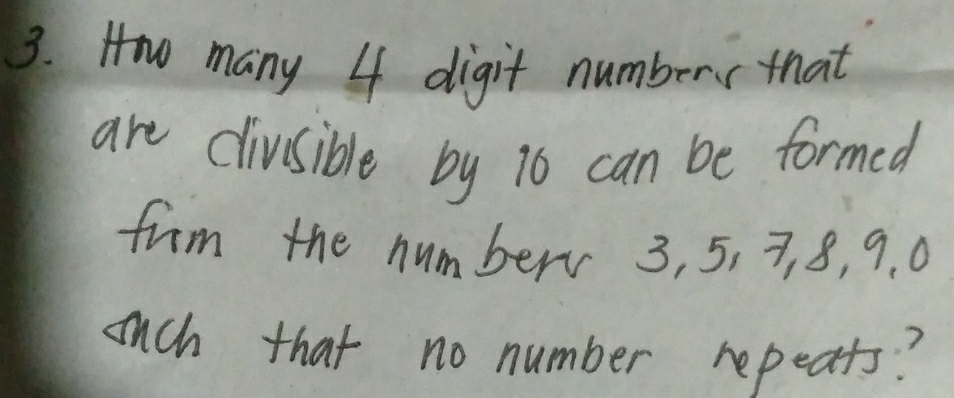 3. How many 4 digit numbers that
are divisible by 10 can be formed
from the numbers 3, 5, 7, 8, 9, 0
such that no number repeats?